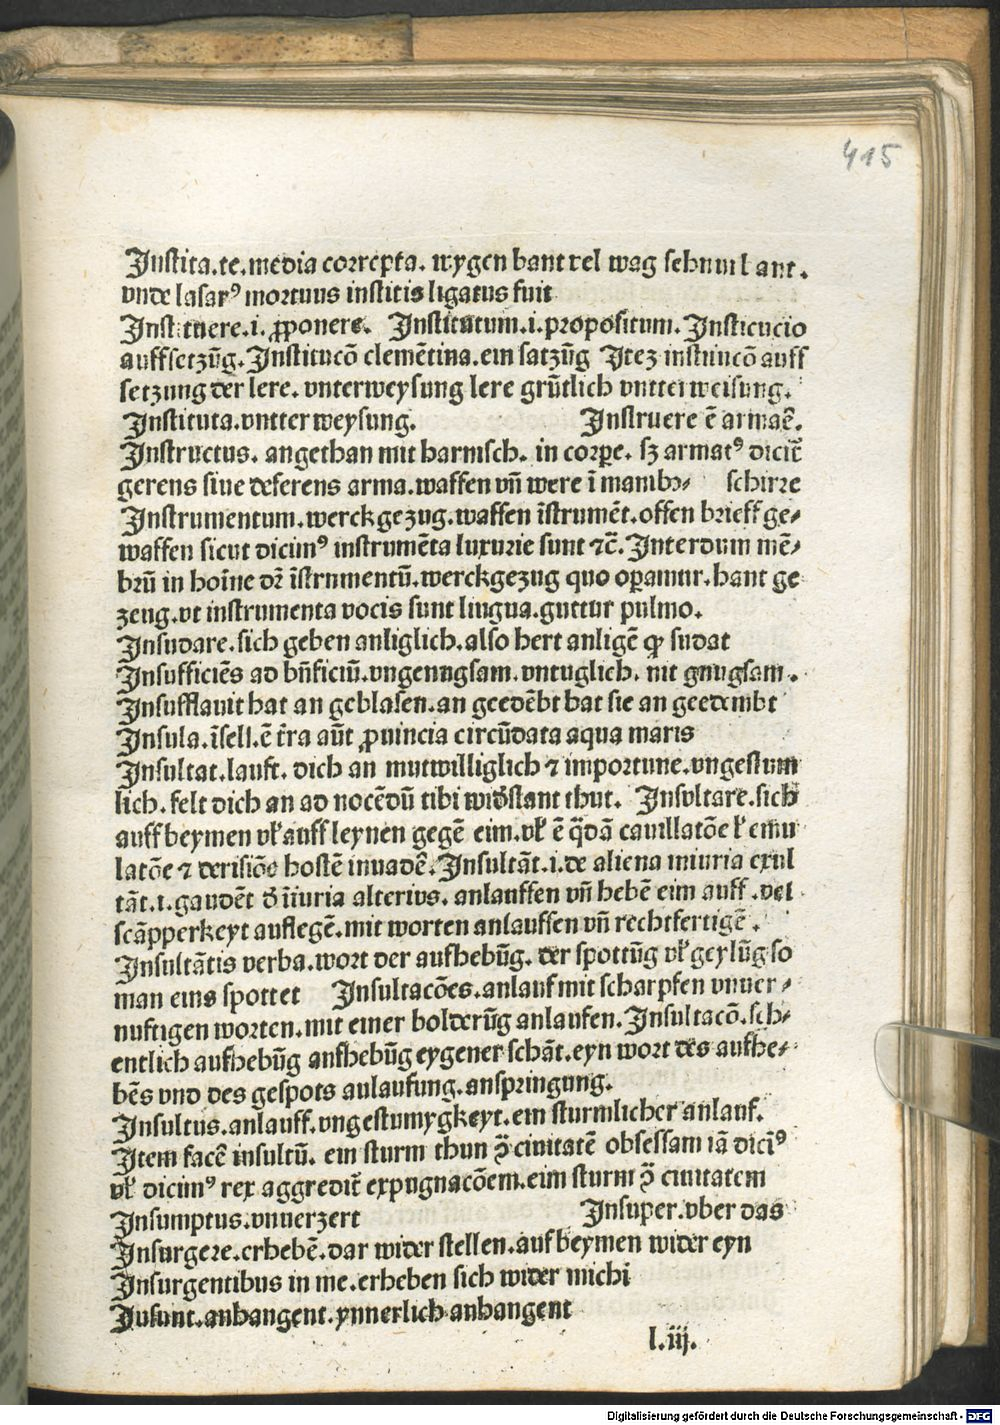 415
Instita.te.media correpta. wygen bant vel wag schnur l ant.
vnde lasarꝰ mortuus institis ligatus fuit
Instituere.i. ꝓponere. Institutum.i.propositum. Institucio
auffsetzūg. Institucō clemētina.ein satzūg Itez instrucō auff
setzung der lere. vnterweysung lere grūtlich vntterweisung.
Instituta.vntter weysung. Instruere ē armaē.
Instructus. angethan mit harnisch. in corꝑe. sꝫ armatꝰ dicit̄
gerens siue deferens arma.waffen vn̄ were ī manibꝫ schirre
Instrumentum.werckgezug.waffen īstrumēt.offen brieff ge⸗
waffen sicut dicimꝰ instrumēta luxurie sunt ⁊c̄. Interdum mē⸗
brū in hoīne dr̄ īstrumentū.werckgezug quo oꝑamur.hant ge
zeug.vt instrumenta vocis sunt lingua.guttur pulmo.
Insudare.sich geben anliglich.also hert anligē ꝙ sudat
Insufficiēs ad bn̄ficiū.vngenugsam.vntuglich. nit gnugsam.
Insufflauit hat an geblasen.an geedēbt hat sie an geedembt
Insula.īsell.ē t̄ra aūt ꝓuincia circūdata aqua maris
Insultat.lauft. dich an mutwilliglich ⁊ importune.vngestum
lich.felt dich an ad nocēdū tibi widstant thut. Insultare.sich
auff beymen vl̄ auff leynen gegē eim.vl̄ ē q̄dā cauillatōe l̄ emu
latōe ⁊ derisiōe hostē inuadē. Insultāt.i.de aliena iniuria exul
tāt.i.gaudēt d̄ īiuria alterius. anlauffen vn̄ hebē eim auff.vel
scāpperkeyt auflegē.mit worten anlauffen vn̄ rechtfertigē.
Insultātis verba.wort der aufhebūg. der spottūg vl̄ geylūg so
man eins spottet Insultacōes.anlauf mit scharpfen vnuer⸗
nuftigen worten.mit einer bolderūg anlaufen. Insultacō.sch⸗
entlich aufhebūg aufhebūg eygener schāt.eyn wort des aufhe⸗
bēs vnd des gespots aulaufung.anspringung.
Insultus.anlauff.vngestumygkeyt.ein sturmlicher anlauf.
Item facē insultū. ein sturm thun ꝯ̄ ciuitatē obsessam iā dicīꝰ
vl̄ dicimꝰ rex aggredit̄ expugnacōem.eim sturm ꝯ̄ ciuitatem
Insumptus.vnuerzert Insuper.vber das
Insurgere.erhebē.dar wider stellen.auf beymen wider eyn
Insurgentibus in me.erheben sich wider michi
Iusunt.anhangent.ynnerlich anhangent
l.iij.
Digitalisierung gefördert durch die Deutsche Forschungsgemeinschaft - DFG